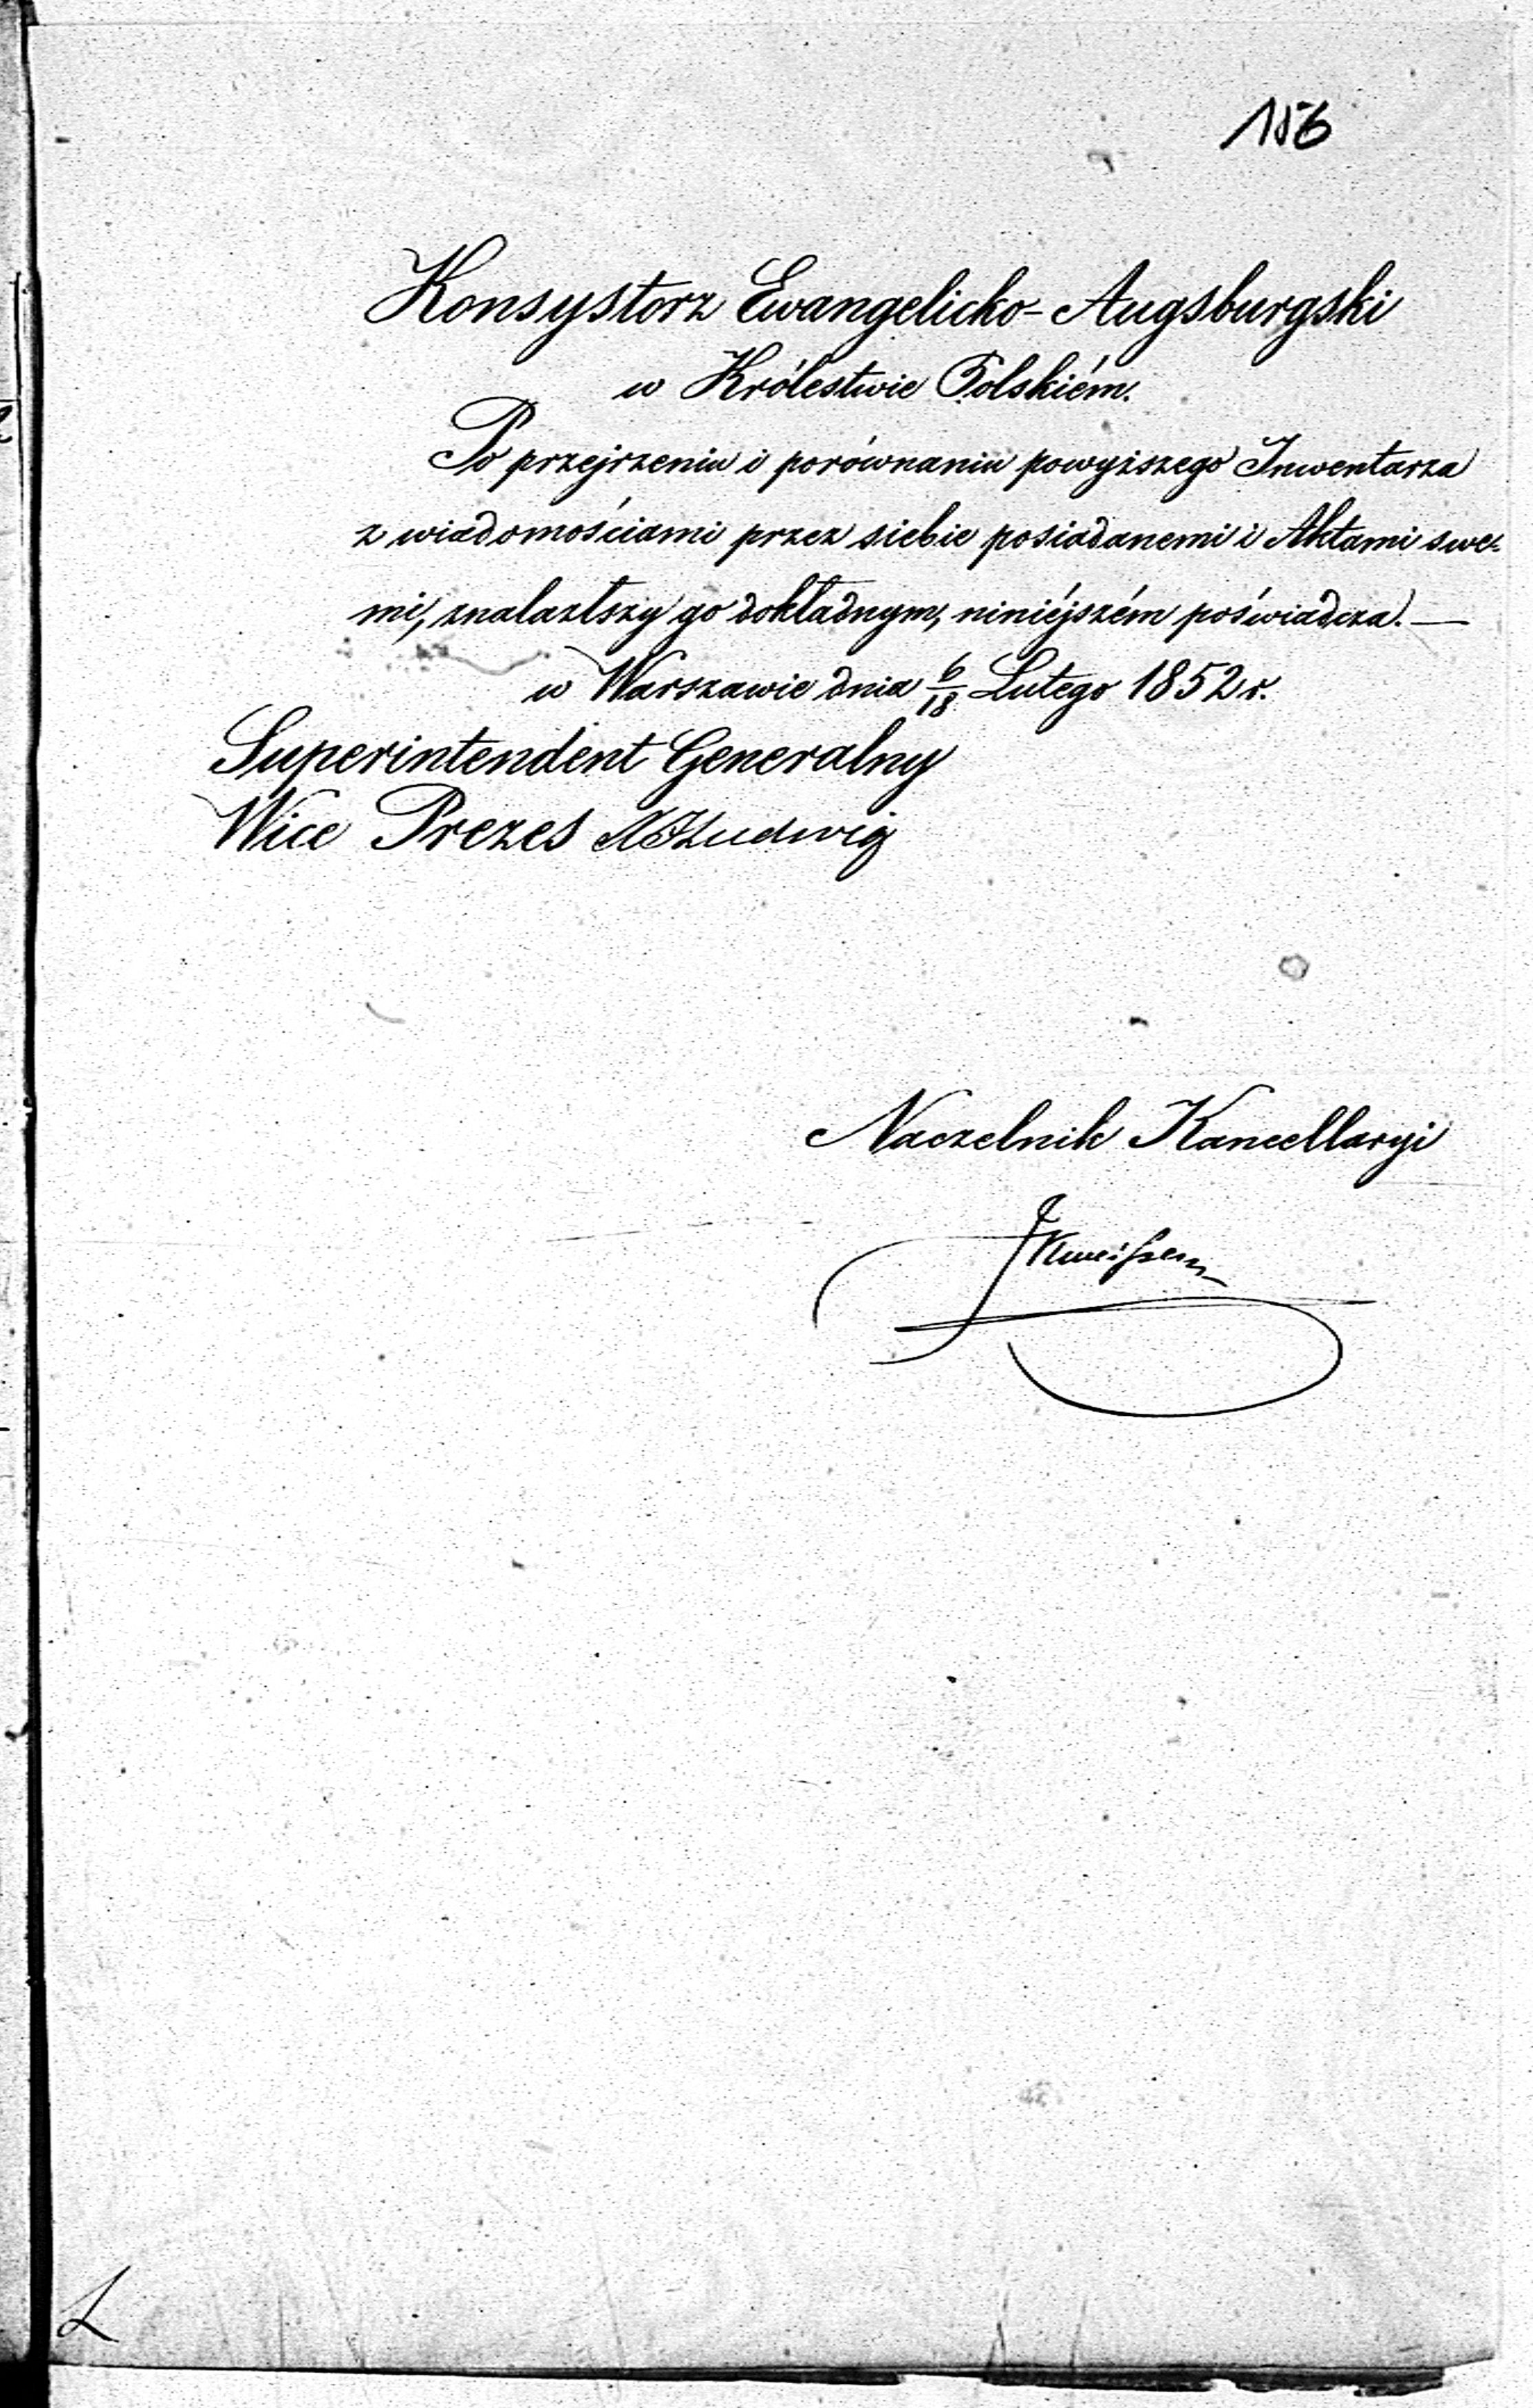 156
Konsystorz Ewangelicko-Augsburgski
w Królestwie Polskiém.
Po przejrzeniu i porównaniu powyższego Inwentarza
z wiadomościami przez siebie posiadanemi i Aktami swe-
mi, znalazłszy go dokładnym, niniéjszém poświadcza.—
w Warszawie dnia 6/18 Lutego 1852 r.
Superintendent Generalny
Wice Prezes Ludwig
Naczelnik Kancellaryi
L